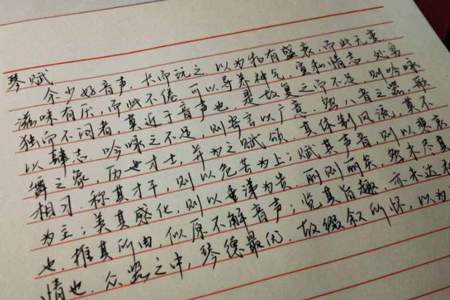 琴赋
余少好音声,长而玩之,以为物有盛衰,而此无变
滋味有厌,而此不倦,可以导养神气,宣和情志,处穷
独而不闷者,莫近于音声也,是故复之而不足,则吟咏
以肆志,吟咏之不足,则寄言以广意,然八音之器,歌
舞之象,历世才士,并为之赋颂,其体制风流,莫不
相习,称其才干,则以危苦为上;赋其声音则以悲哀
为主;美其感化,则以垂涕为贵,丽则丽矣,然未尽其
也,推其所由,似原不解音声;览其旨趣,亦未达礼
情也,众器之中,琴德最优,故缀叙所怀,以为